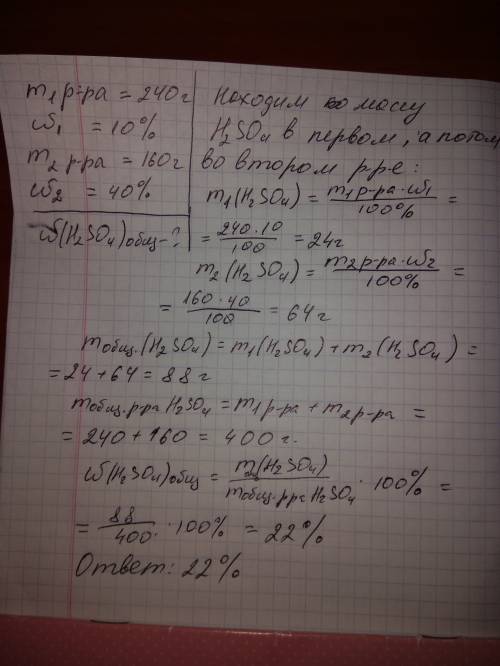 m₁ р-ра = 240г
ω₁ = 10%
m₂ р-ра = 160г
ω₂ = 40%
ω(H₂SO₄)общ-?
находим массу
H₂SO₄ в первом, а потом
во втором р-ре:
m₁(H₂SO₄) = m₁ р-ра · ω₁ / 100% =
= 240 · 10 / 100 = 24г
m₂(H₂SO₄) = m₂ р-ра · ω₂ / 100% =
= 160 · 40 / 100 = 64 г
mобщ.(H₂SO₄) = m₁(H₂SO₄) + m₂(H₂SO₄) =
= 24 + 64 = 88 г
mобщ.р-ра H₂SO₄ = m₁ р-ра + m₂ р-ра =
= 240 + 160 = 400 г.
ω(H₂SO₄)общ = m₂(H₂SO₄) / mобщ.р-ра H₂SO₄ · 100% =
= 88 / 400 · 100% = 22%
Ответ: 22%